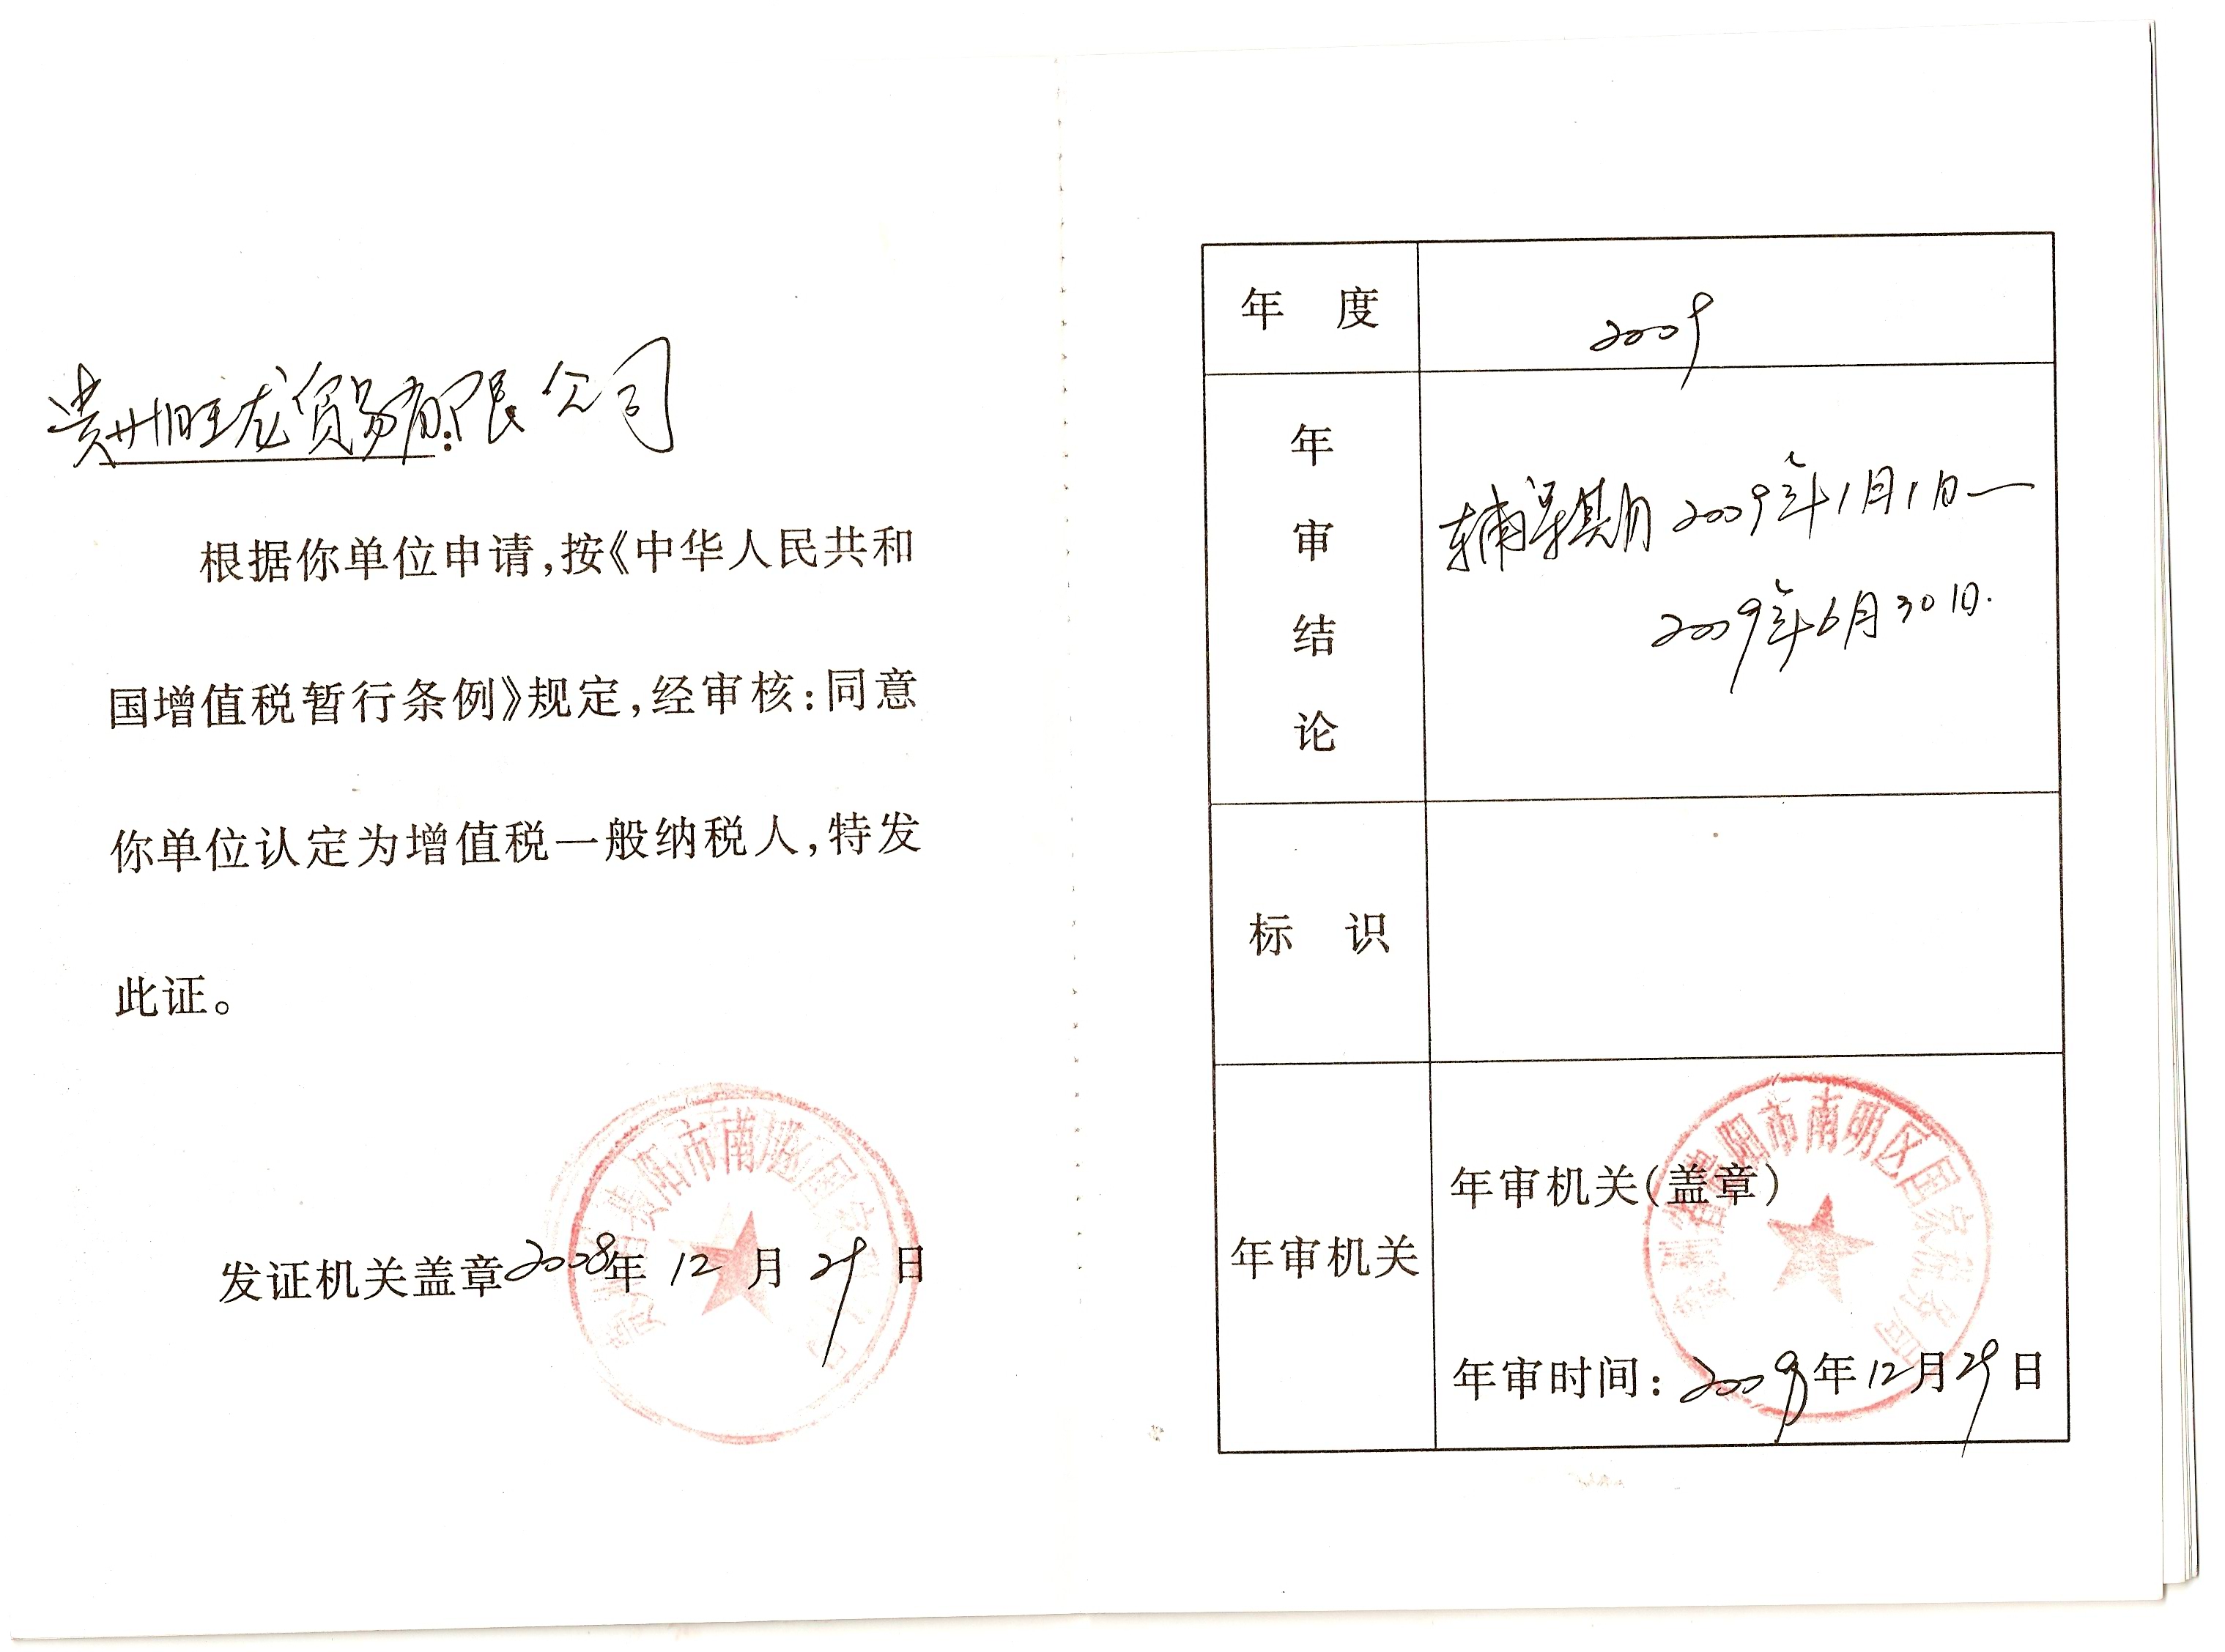 贵州旺龙贸易有限公司:
根据你单位申请,按《中华人民共和
国增值税暂行条例》规定,经审核:同意
你单位认定为增值税一般纳税人,特发
此证。
贵州省贵阳市南明区国家税务局
发证机关盖章2008年 12 月 29 日
年 度 2009
年审结论
辅导期 2009年1月1日—
2009年6月30日.
标 识
年审机关
年审机关(盖章)
贵州省贵阳市南明区国家税务局
年审时间:2009年12月29日